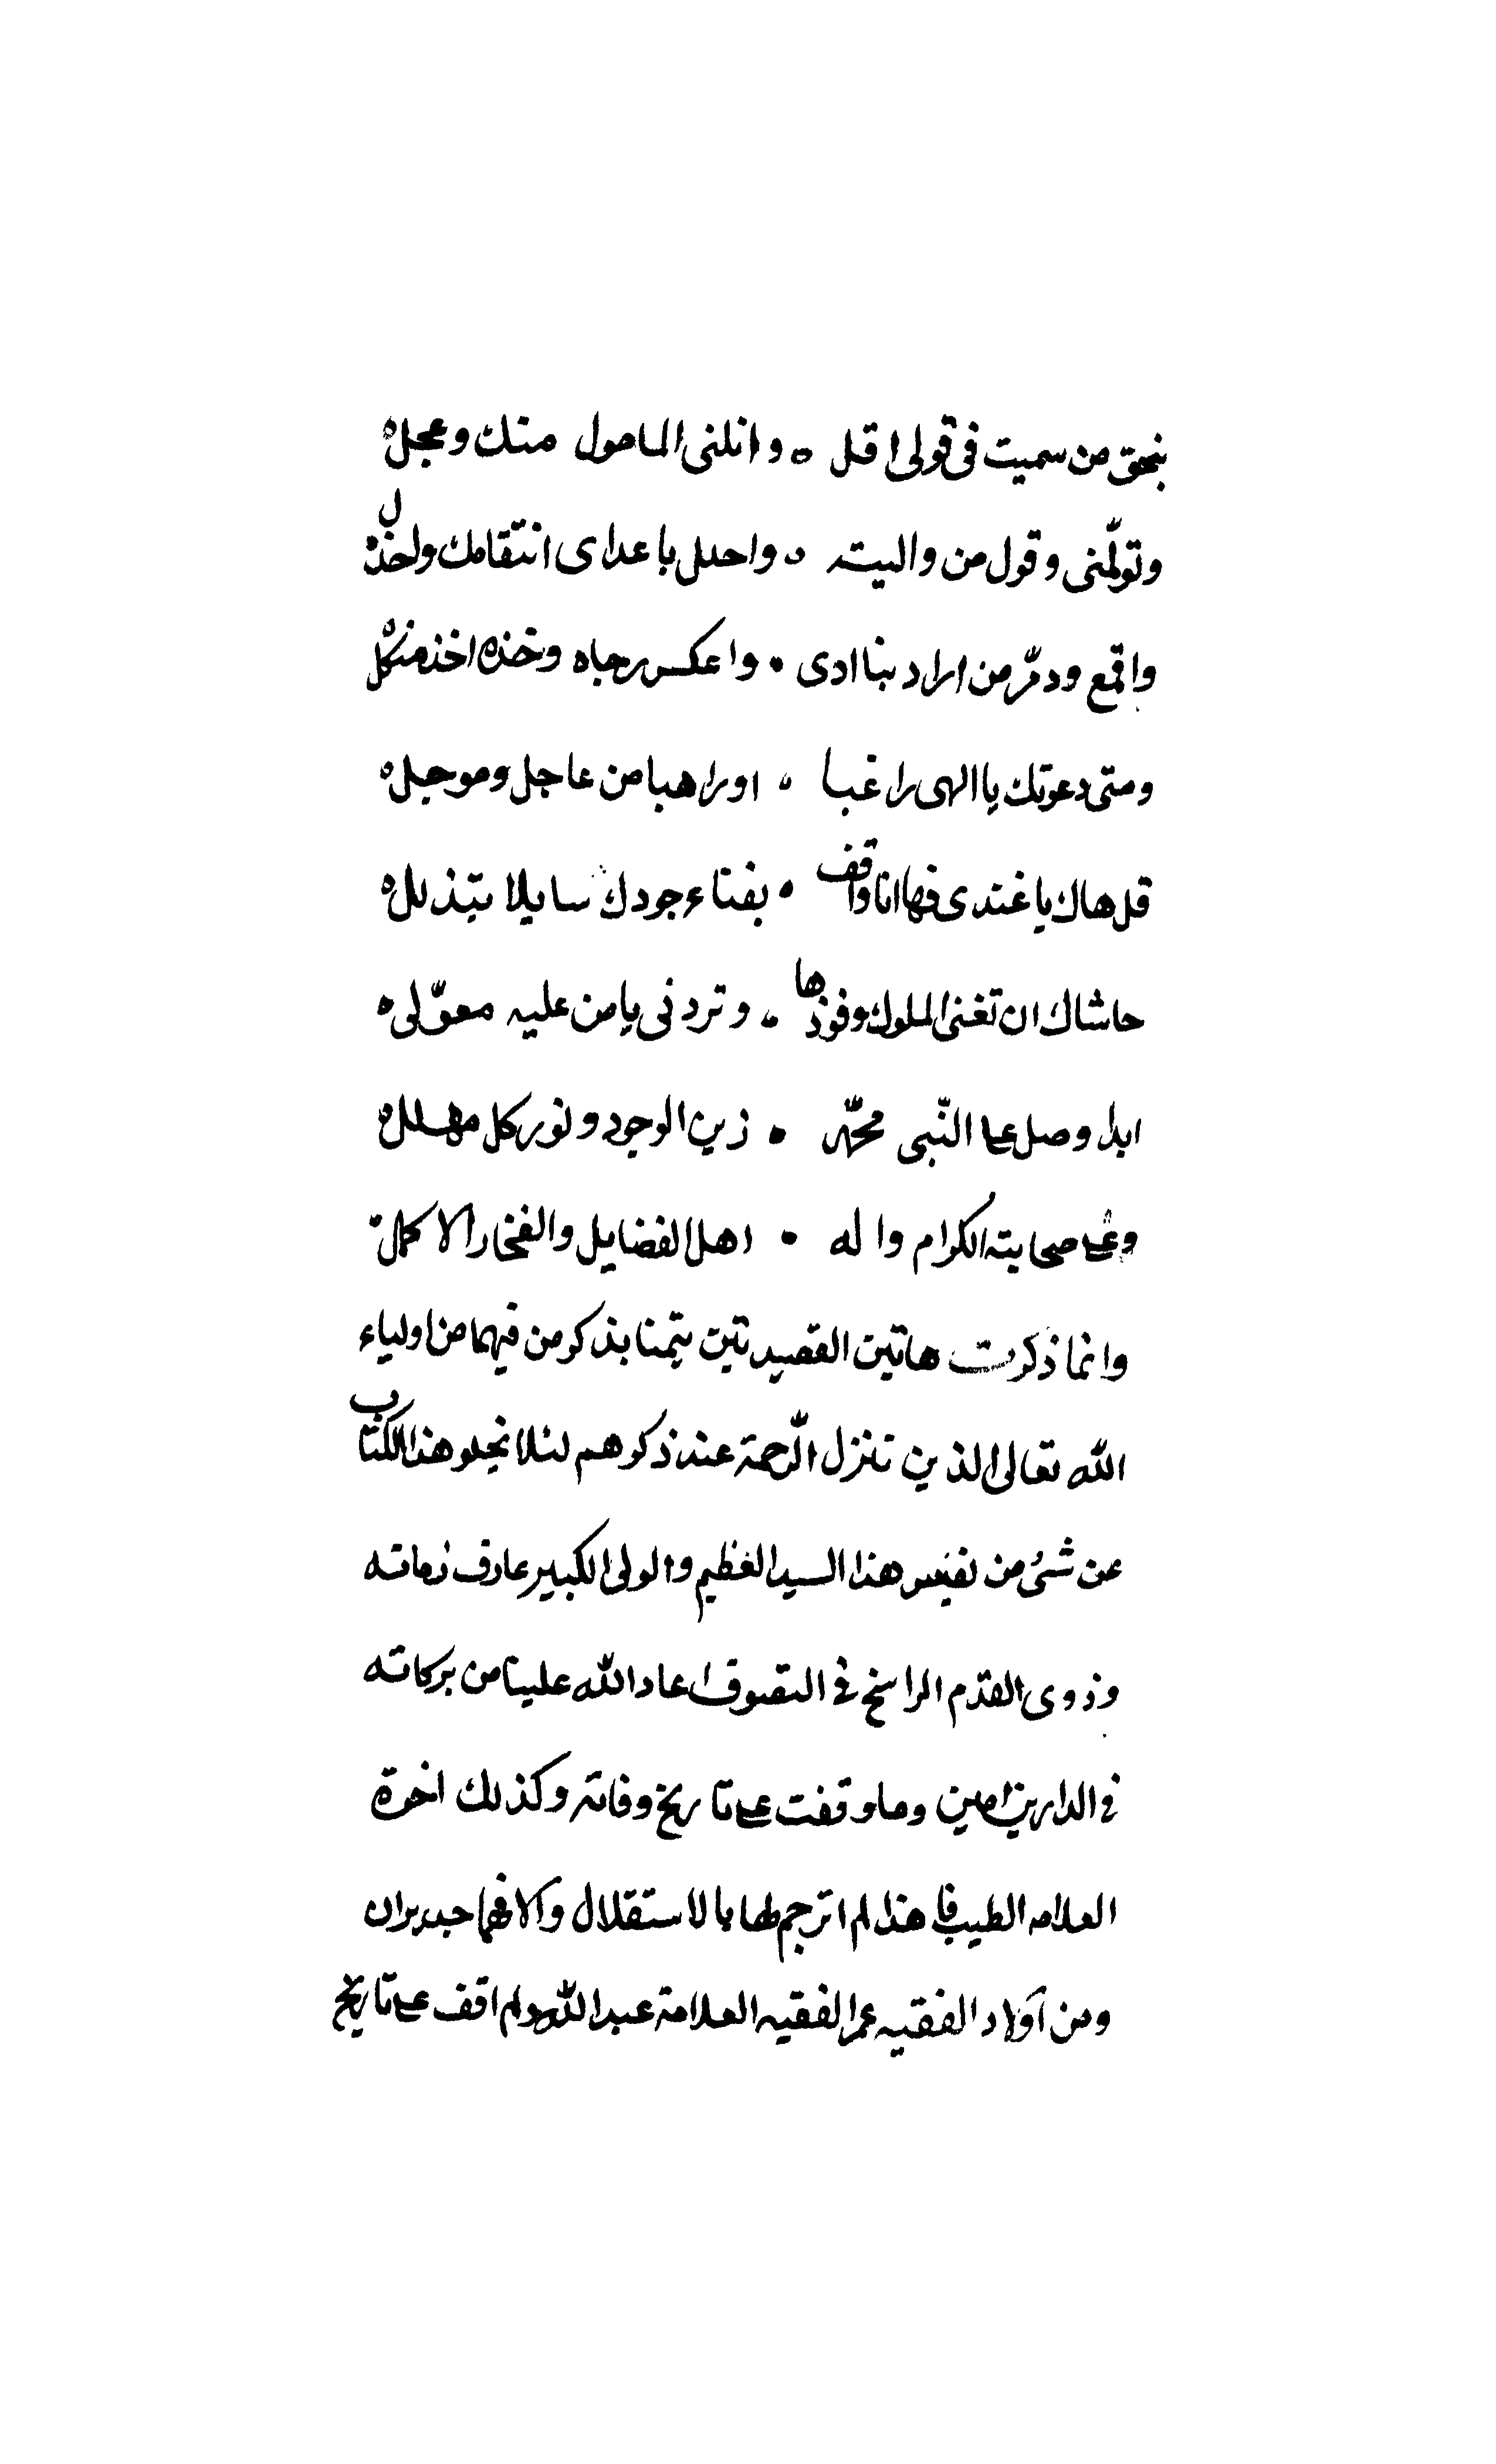 بحق من سميت في قولي اقل ه وانلني المامول منك وعجل ه
وتولّني وقول من واليته ه واحلل باعداى انتقامك واخذل ه
واقمع ودمّر من اراد بنا اذى • واعكس رجاه وخذه اخذ منكل ه
ومتى دعوتك يا الهى راغبا ه او راهبا من عاجل وموجل ه
قل هاك يا عندى فها انا واقف ه بفناء جودك سايلا بتذلل ه
حاشاك ان تغنى الملوك وفودها ه وتردنى يا من عليه معوّلى ه
ابدا وصل على النّبى محمّد • زين الوجود ونور كل مهلل ه
وعلى صحابته الكرام واله • اهل الفضايل والفخار الاكمل ه
وانما ذكرت هاتين القصيدتين تيمنا بذكر من فيهما من اولياء
الله تعالى الذين تنزل الرّحمة عند ذكرهم لئلا يخلو هذا الكتاب
عن شئ من نفيس هذا السيد العظيم والولى الكبير عارف زمانه
وذوى القدم الراسخ فى التصوف اعاد الله علينا من بركاته
فى الدارين امين وما وقفت على تاريخ وفاته وكذلك اخوه
العلامه الطيب فلهذا لم اترجم لهما بالاستقلال والا فهما جديران
ومن آولاد الفقيه عمر الفقيه العلامة عبد الله ولم اقف على تاريخ